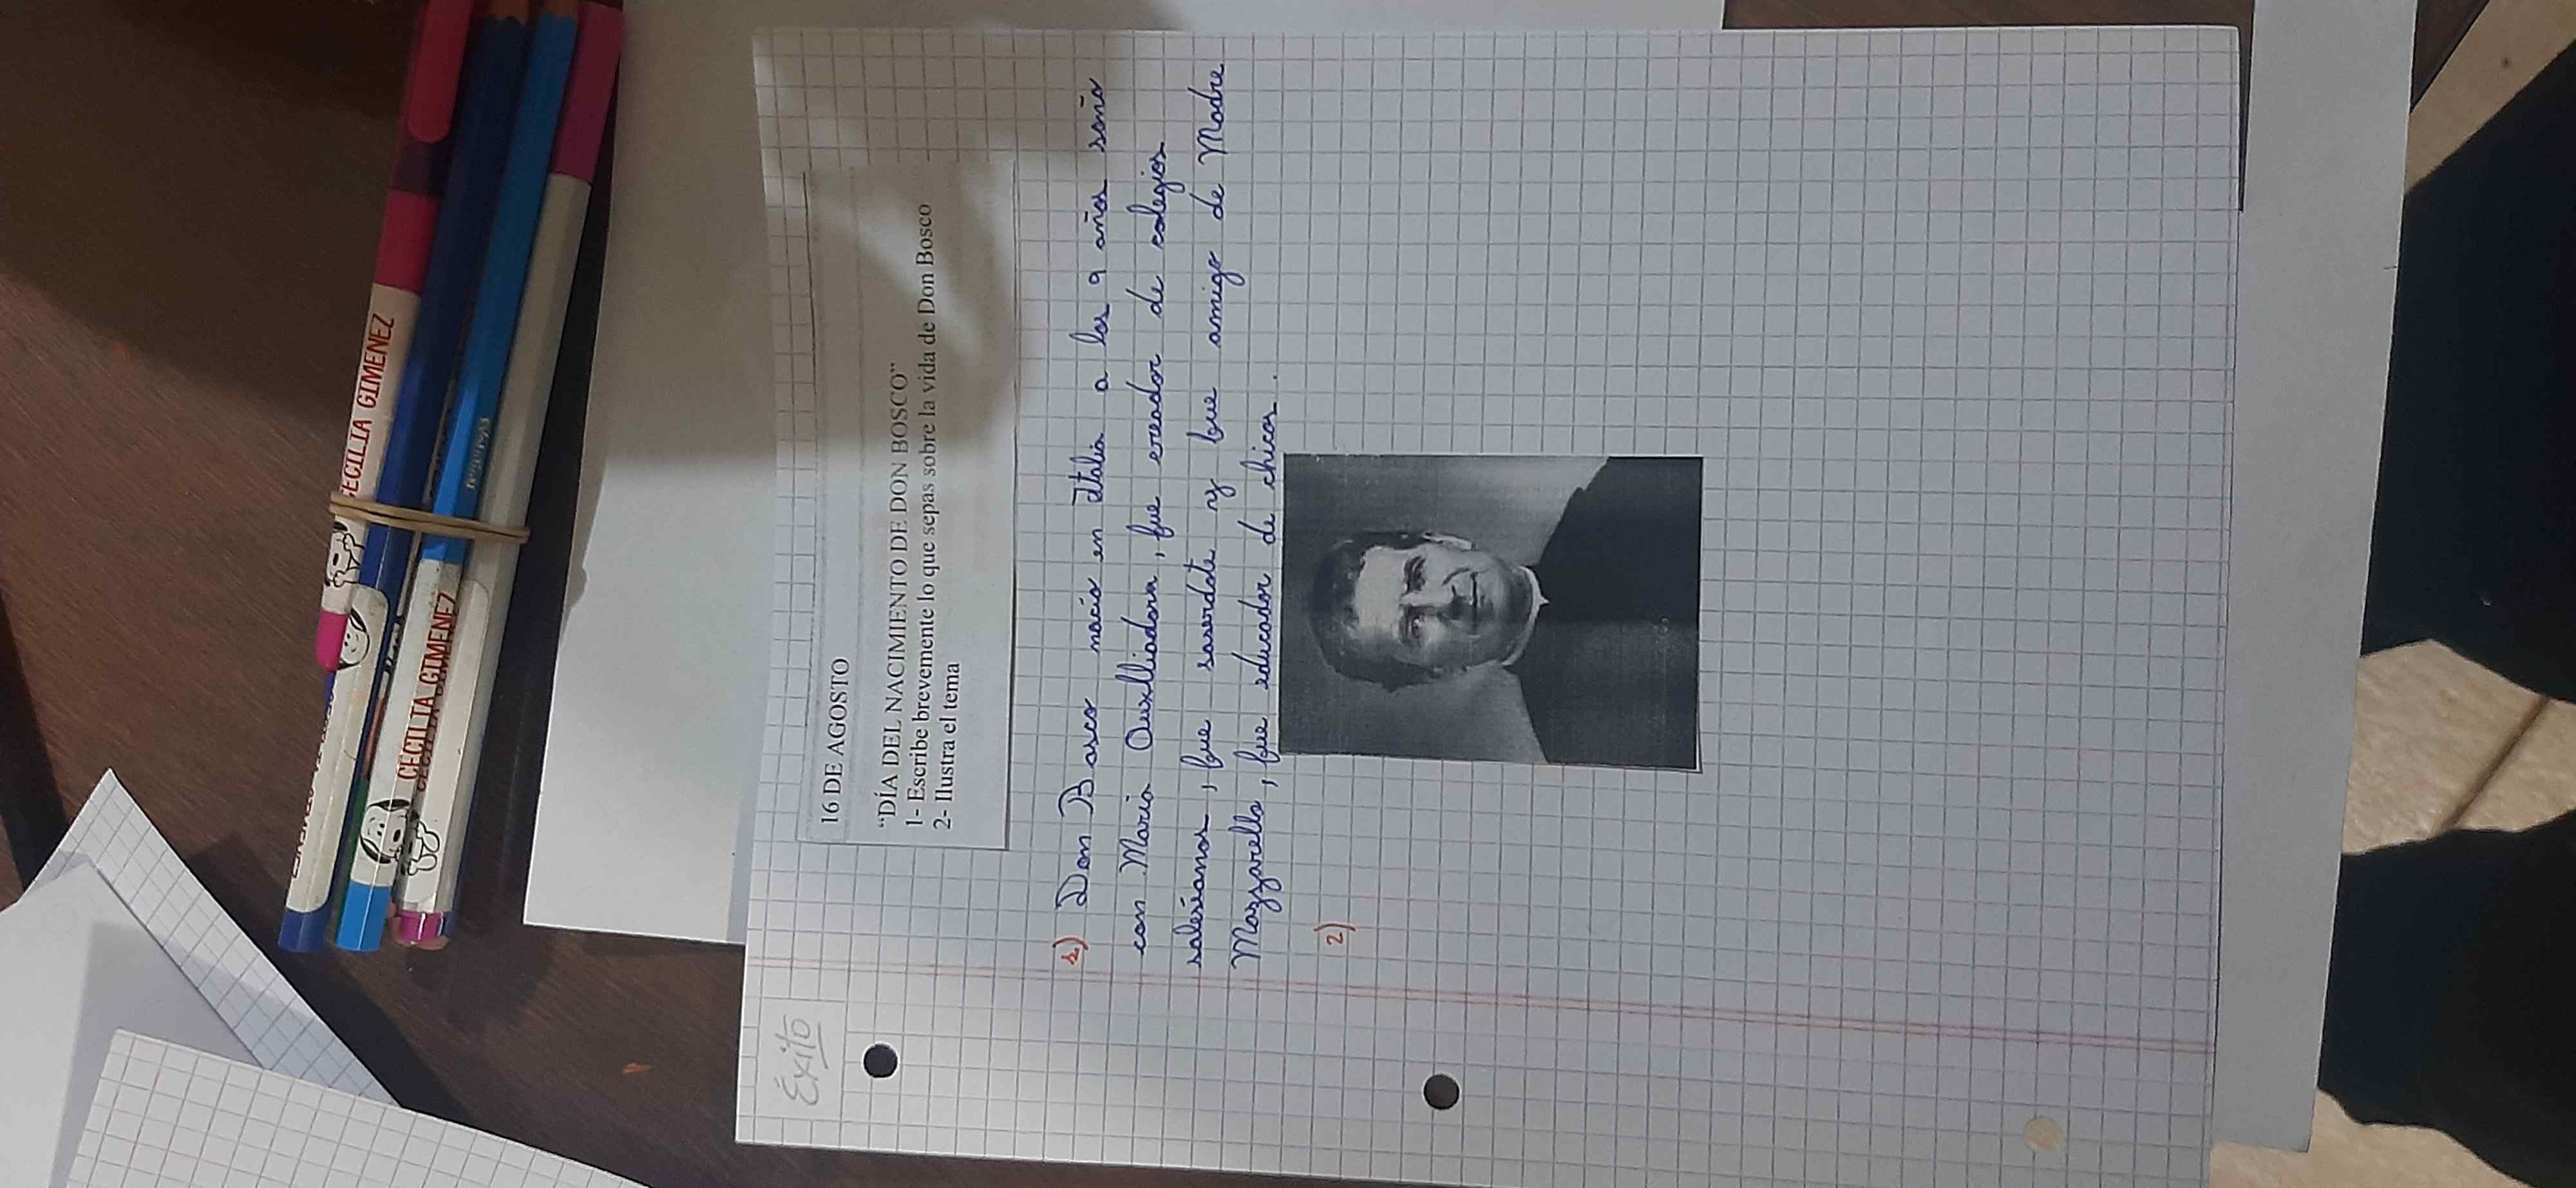 Éxito
16 DE AGOSTO
“DÍA DEL NACIMIENTO DE DON BOSCO”
1- Escribe brevemente lo que sepas sobre la vida de Don Bosco
2- Ilustra el tema
1) Don Bosco nacio en Italia a los 9 años soño
con Maria Auxiliadora, fue creador de colegios
salesianos, fue saserdote y fue amigo de Madre
Mazzarello, fue educador de chicos.
2)
CECILIA GIMENEZ
CECILIA GIMENEZ